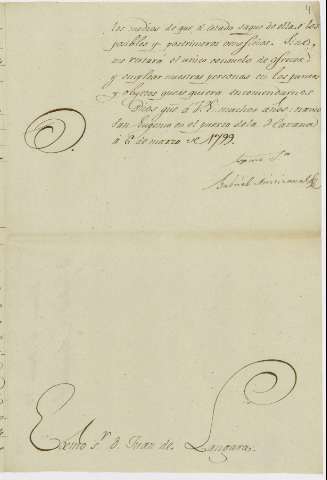 4
los medios de que el estado saque de ella los
posibles y postrimeros beneficios. Y no
nos restará el unico consuelo de ofrecer
y emplear nuestras personas en los puntos
y objetos que se quiera encomendarnos
Dios gue á V.E. muchos años. navio
San Eugenio en el puerto de la
á 6 de marzo de 1799.
Exmo Sr
Gabriel
Exmo Sr. D. Juan de Langara.